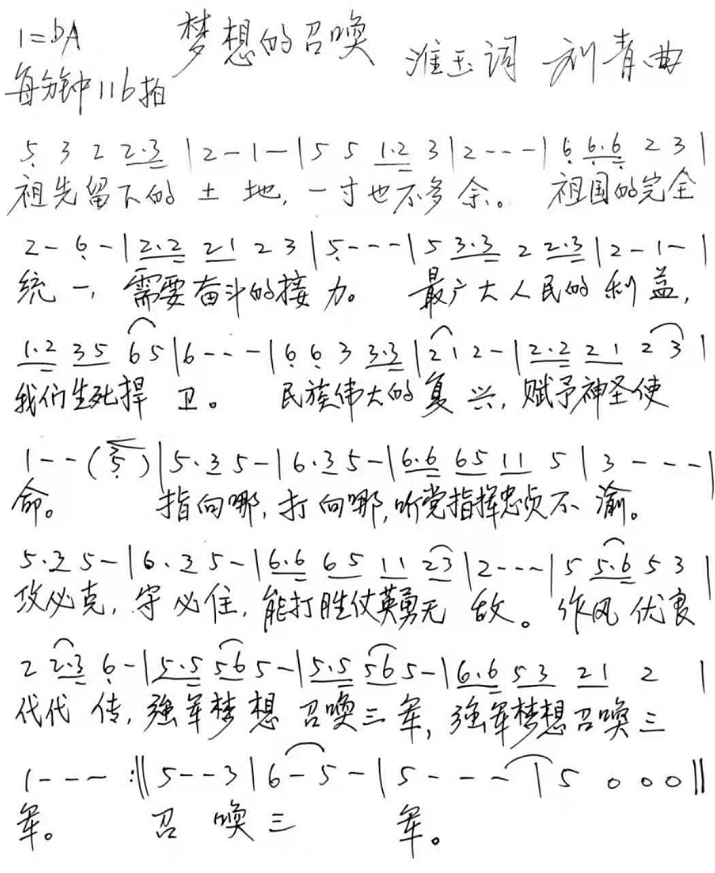 1=bA 梦想的召唤 淮玉词 刘青曲
每分钟116拍
5 3 2 2·3 | 2 - 1 - | 5 5 1·2 3 | 2 - - - | 6 6·6 2 3 |
祖先留下的 土 地, 一寸也不多余。 祖国的完全
2 - 6 - | 2·2 21 2 3 | 5 - - - | 5 3·3 2 2·3 | 2 - 1 - |
统 一, 需要奋斗的接 力。 最广大人民的 利 益,
1·2 35 65 | 6 - - - | 6 6 3 3·3 | 212 - | 2·2 21 2 3 |
我们生死捍 卫。 民族伟大的 复 兴, 赋予神圣使
1 - - (5) | 5·3 5 - | 6·3 5 - | 6·6 65 11 5 | 3 - - - |
命。 指向哪, 打向哪, 听党指挥忠贞不 渝。
5·3 5 - | 6·3 5 - | 6·6 65 11 23 | 2 - - - | 5 5·6 5 3 |
攻必克, 守必住, 能打胜仗英勇无 敌。 作风 优良
2 2·3 6 - | 5·5 56 5 - | 5·5 56 5 - | 6·6 53 21 2 |
代代 传, 强军梦想 召唤三军, 强军梦想召唤三
1 - - - :‖ 5 - - 3 | 6 - 5 - | 5 - - - | 5 0 0 0 ‖
军。 召 唤 三 军。